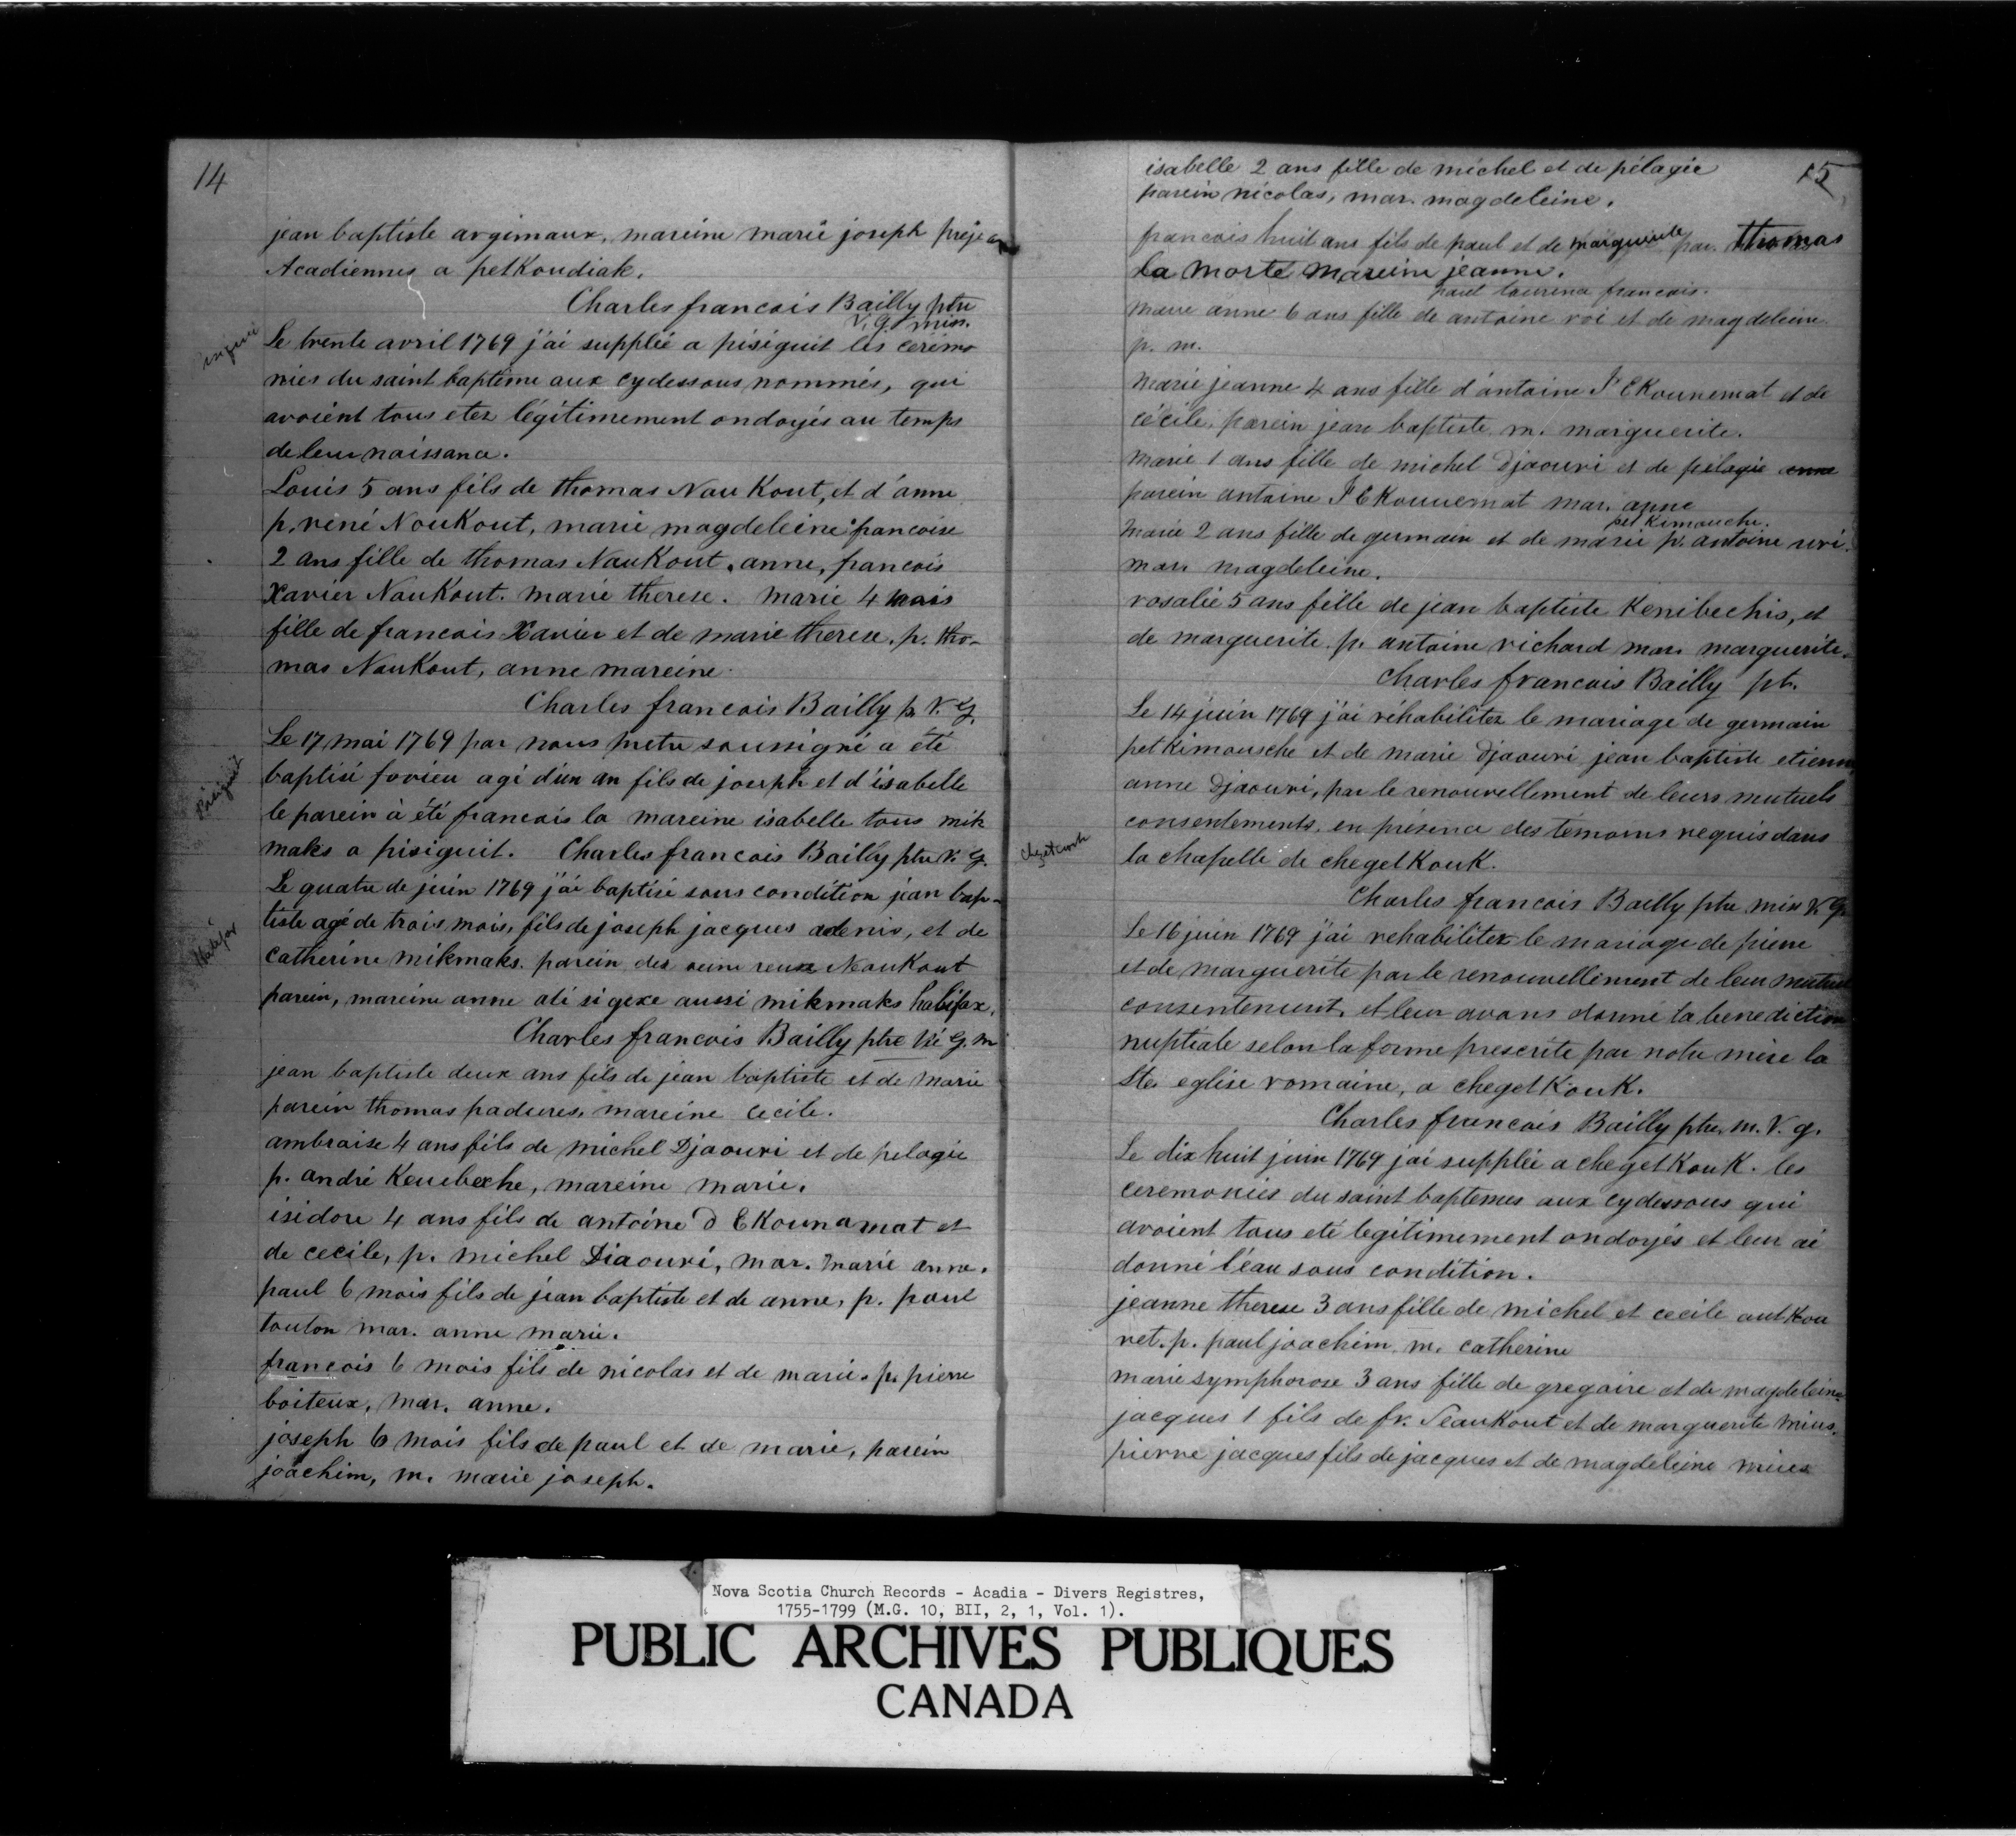 14
jean baptiste argimaux, mareine marie joseph préjean
Acadiennes a petKoudiak.
Charles francois Bailly ptre
V. G. miss.
Le trente avril 1769 j'ai supplée a pisiguit les ceremo
nies du saint baptême aux cydessous nommés, qui
avoient tous etez légitimement ondoyés au temps
de leur naissance.
Louis 5 ans fils de thomas Nau Kout, et d'anne
p. rené NouKout, marie magdeleine francoise
2 ans fille de thomas NauKout. anne, francois
Xavier NauKout. marie therese. marie 4 mois
fille de francois Xavier et de marie therese. p. tho-
mas NauKout, anne mareine
Charles francois Bailly p. V. G.
Pisiguit
Le 17 mai 1769 par nous pretre soussigné a été
baptisé agé d'un an fils de joseph et d'isabelle
le parein à été francois la mareine isabelle tous mik
maks a pisiguit. Charles francois Bailly ptre V. G.
Le quatre de juin 1769 j'ai baptisé sous condition jean bap-
tiste agé de trois mois, fils de joseph jacques adenis, et de
Halifax
catherine mikmaks. parein des reine NauKout
parein, mareine anne ati si gexe aussi mikmaks halifax.
Charles francois Bailly ptre Vi G. m
jean baptiste deux ans fils de jean baptiste et de marie
parein thomas padures, mareine cecile.
ambroise 4 ans fils de michel Djaouri et de pelagie
p. andré Keuebexhe, mareine marie.
isidore 4 ans fils de antoine d EKounamat et
de cecile, p. michel Diaouri, mar. marie anne.
paul 6 mois fils de jean baptiste et de anne, p. paul
touton mar. anne marie.
francois 6 mois fils de nicolas et de marie. p. pierre
boiteux, mar. anne.
joseph 6 mois fils de paul et de marie, parein
joachim, m. marie joseph.
15
isabelle 2 ans fille de michel et de pélagie
parein nicolas, mar. magdeleine.
francois huit ans fils de paul et de marguerite par. thomas
la morte mareine jeanne.
paul francois.
marie anne 6 ans fille de antoine roi et de magdeleine
p. m.
marie jeanne 4 ans fille d'antoine P EKounemat et de
cécile. parein jean baptiste m. marguerite.
marie 1 ans fille de michel Djaouri et de pélagie anne
parein antoine P EKouuemat mar. anne
pet Kimouche.
marie 2 ans fille de germain et de marie p. antoine
mar. magdeleine.
rosalie 5 ans fille de jean baptiste Kenibechis, et
de marguerite p. antoine richard mar. marguerite.
Charles francois Bailly pt.
Le 14 juin 1769 j'ai réhabilitez le mariage de germain
petKimousche et de marie Djaouri jean baptiste etienne
anne Djaouri, par le renouvellement de leurs mutuels
consentements, en présence des temoins requis dans
la chapelle de chegetKouK.
Charles francois Bailly ptre miss V. G.
Le 16 juin 1769 j'ai rehabilitez le mariage de pierre
et de marguerite par le renouvellement de leur mutuel
consentement, et leur avons donné la benediction
nuptiale selon la forme prescrite par notre mère la
Ste. eglise romaine, a chegetKouK.
Charles francois Bailly ptre. m. V. g.
Le dix huit juin 1769 j'ai supplée a chegetKouK. les
ceremonies du saint baptemes aux cydessous qui
avoient tous eté legitimement ondoyés et leur ai
donné l'eau sous condition.
jeanne therese 3 ans fille de michel et cecile autKou
ret. p. paul joachim. m. catherine
marie symphorose 3 ans fille de gregoire et de magdeleine
jacques 1 fils de fr. NeauKout et de marguerite mius.
pierre jacques fils de jacques et de magdeleine mius
Nova Scotia Church Records - Acadia - Divers Registres,
1755-1799 (M.G. 10, BII, 2, 1, Vol. 1).
PUBLIC ARCHIVES PUBLIQUES
CANADA